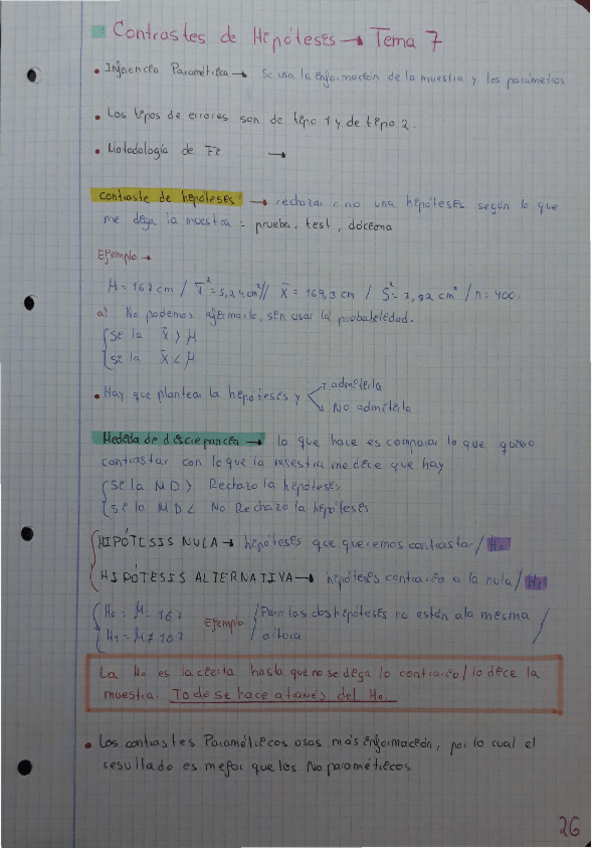 Contrastes de Hipóteses → Tema 7
• Inferencia Paramétrica → Se usa la información de la muestra y los parámetros
• Los tipos de errores son de tipo 1 y de tipo 2.
• Metodología de →
contraste de hepóteses → rechazar o no una hepóteses según lo que
me dega la muestra = prueba, test, dócema
Ejemplo →
M = 167 cm / = 5,24 cm² // X̄ = 169,3 cm / S² = 7,22 cm² / n = 400.
a) No podemos afermarlo, sen usar la probabeledad.
Se la X̄ > M
Se la X̄ < M
• Hay que plantear la hepóteses y → admeterla
→ No admeterla
Mededa de descrepancea → lo que hace es comparar lo que quiero
contrastar con lo que la muestra me dece que hay
Se la MD > Rechazo la hepóteses
Se la MD < No Rechazo la hepóteses
HIPÓTESIS NULA → hepóteses que queremos contrastar / H₀
HIPÓTESIS ALTERNATIVA → hepóteses contrarea a la nula / H₁
H₀ = M = 167 Ejemplo / Pero las dos hepóteses no están a la mesma /
H₁ = M ≠ 167 altura
La H₀ es la ceerta hasta que no se dega lo contrareo / lo dece la
muestra. Todo se hace a través del H₀.
• Los contrastes Paramétrecos usas más enformaceón, por lo cual el
resultado es mejor que los No paramétrecos
26